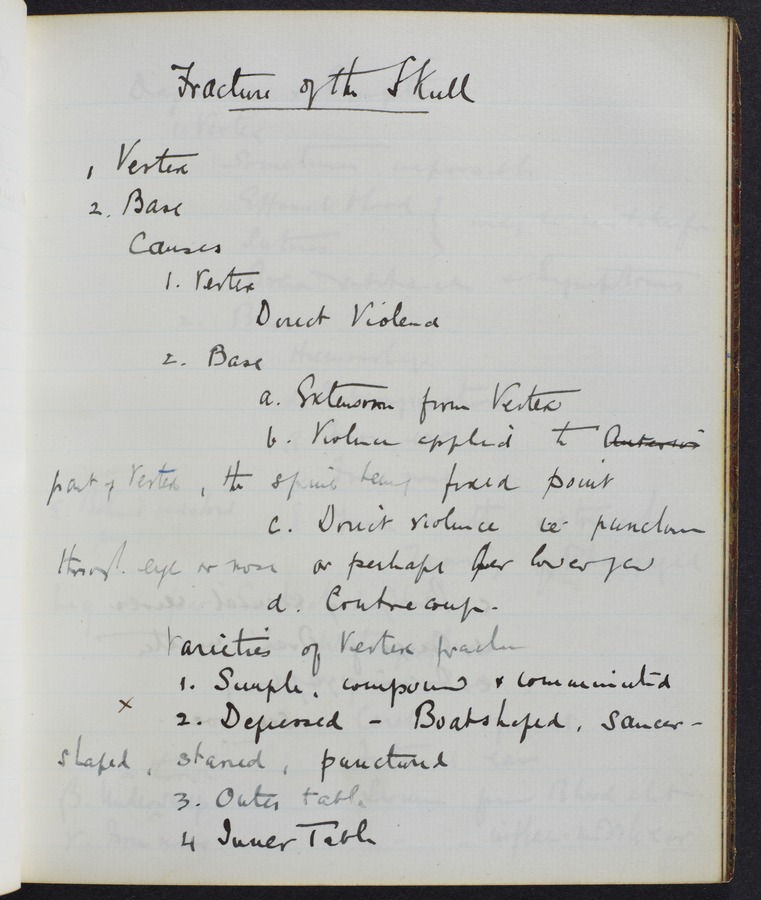 Fracture of the Skull
1 Vertex
2. Base
Causes
1. Vertex
Direct Violence
2. Base
a. Extension from Vertex
b. Violence applied to Anterior
part of Vertex, the spine being fixed point
c. Direct violence ie puncture
through eye or nose or perhaps per lower jaw
d. Contre coup.
Varieties of Vertex fracture
1. Simple, compound & comminuted
x 2. Depressed - Boatshaped, saucer-
shaped, starred, punctured
3. Outer table
4 Inner Table